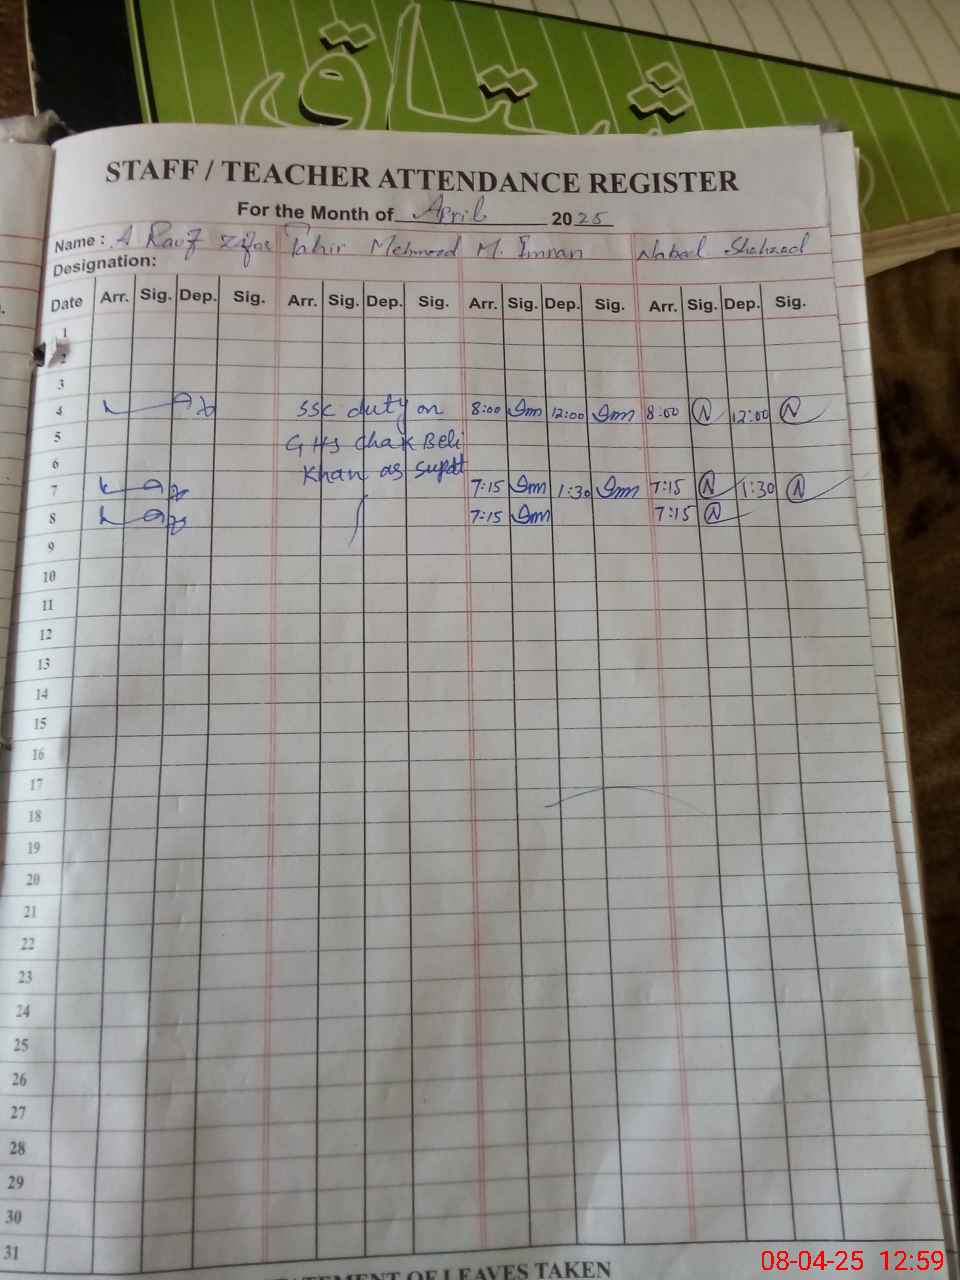 STAFF / TEACHER ATTENDANCE REGISTER
For the Month of April 2025
Name : A Rauf Tahir Mehmood M. Imran Shahzad
Designation:
Date Arr. Sig. Dep. Sig. Arr. Sig. Dep. Sig. Arr. Sig. Dep. Sig. Arr. Sig. Dep. Sig.
1
2
3
4 SSC duty on 8:00 Imn 12:00 Imn 8:00 N 12:00 N
5 GHS Chak Beli
6 Khan as supdt
7 7:15 Imn 1:30 Imn 7:15 N 1:30 N
8 7:15 Imn 7:15 N
9
10
11
12
13
14
15
16
17
18
19
20
21
22
23
24
25
26
27
28
29
30
31
OF LEAVES TAKEN
08-04-25 12:59